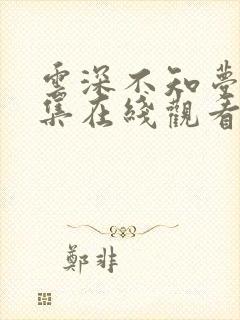 雲深不知夢
集在綫觀看
鄭非